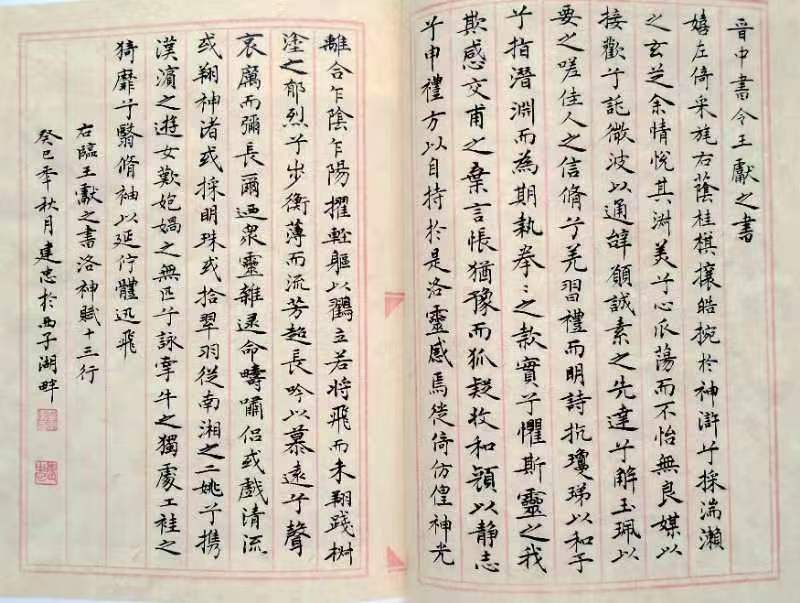 晉中書令王獻之書
嬉左倚采旄右蔭桂棋攘皓捥於神滸兮採湍瀨
之玄芝余情悅其淑美兮心蕩而不怡無良媒以
接歡兮託微波以通辞願誠素之先達兮解玉珮以
要之嗟佳人之信脩兮羌習禮而明詩抗瓊珶以和予
兮指潛淵而為期執拳〻之款實兮懼斯靈之我
欺感交甫之棄言悵猶豫而狐疑收和顏以靜志
兮申禮方以自持於是洛靈感焉徙倚仿偟神光
離合乍陰乍陽擢輕軀以鶴立若將飛而未翔踐椒
塗之郁烈兮步衡薄而流芳超長吟以慕遠兮聲
哀厲而彌長爾迺衆靈雜遝命疇嘯侶或戲清流
或翔神渚或採明珠或拾翠羽從南湘之二姚兮携
漢濱之遊女歎妑媧之無匹兮詠牽牛之獨處工袿之
猗靡兮翳脩袖以延佇體迅飛
右臨王獻之書洛神賦十三行
癸巳年秋月建忠於西子湖畔